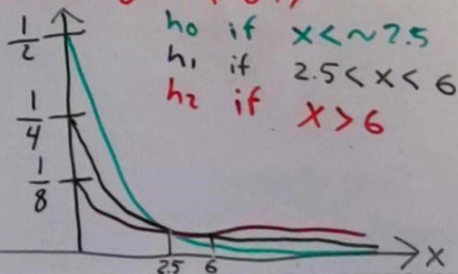 h0 if x<~2.5
h1 if 2.5<x<6
h2 if x>6
1/2
1/4
1/8
2.5 6 x